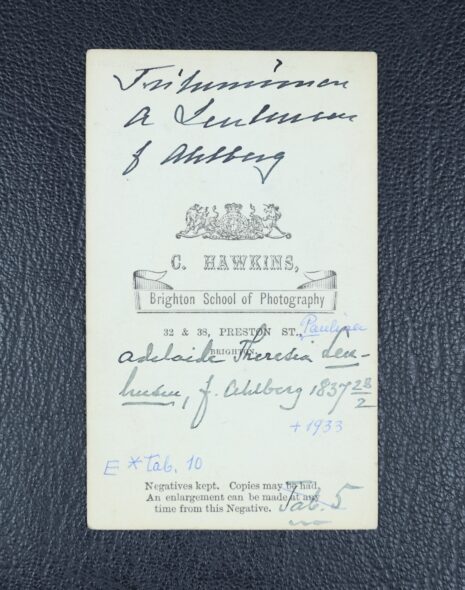 Friherrinnan
A Leuhusen
f Ahlberg
C. HAWKINS,
Brighton School of Photography
32 & 38, PRESTON ST.,
BRIGHTON.
Adelaide Theresia Leu-
husen, f. Ahlberg 1837 28/2
+ 1933
E * Tab. 10
Negatives kept. Copies may be had.
An enlargement can be made at any
time from this Negative.
Tab. 5